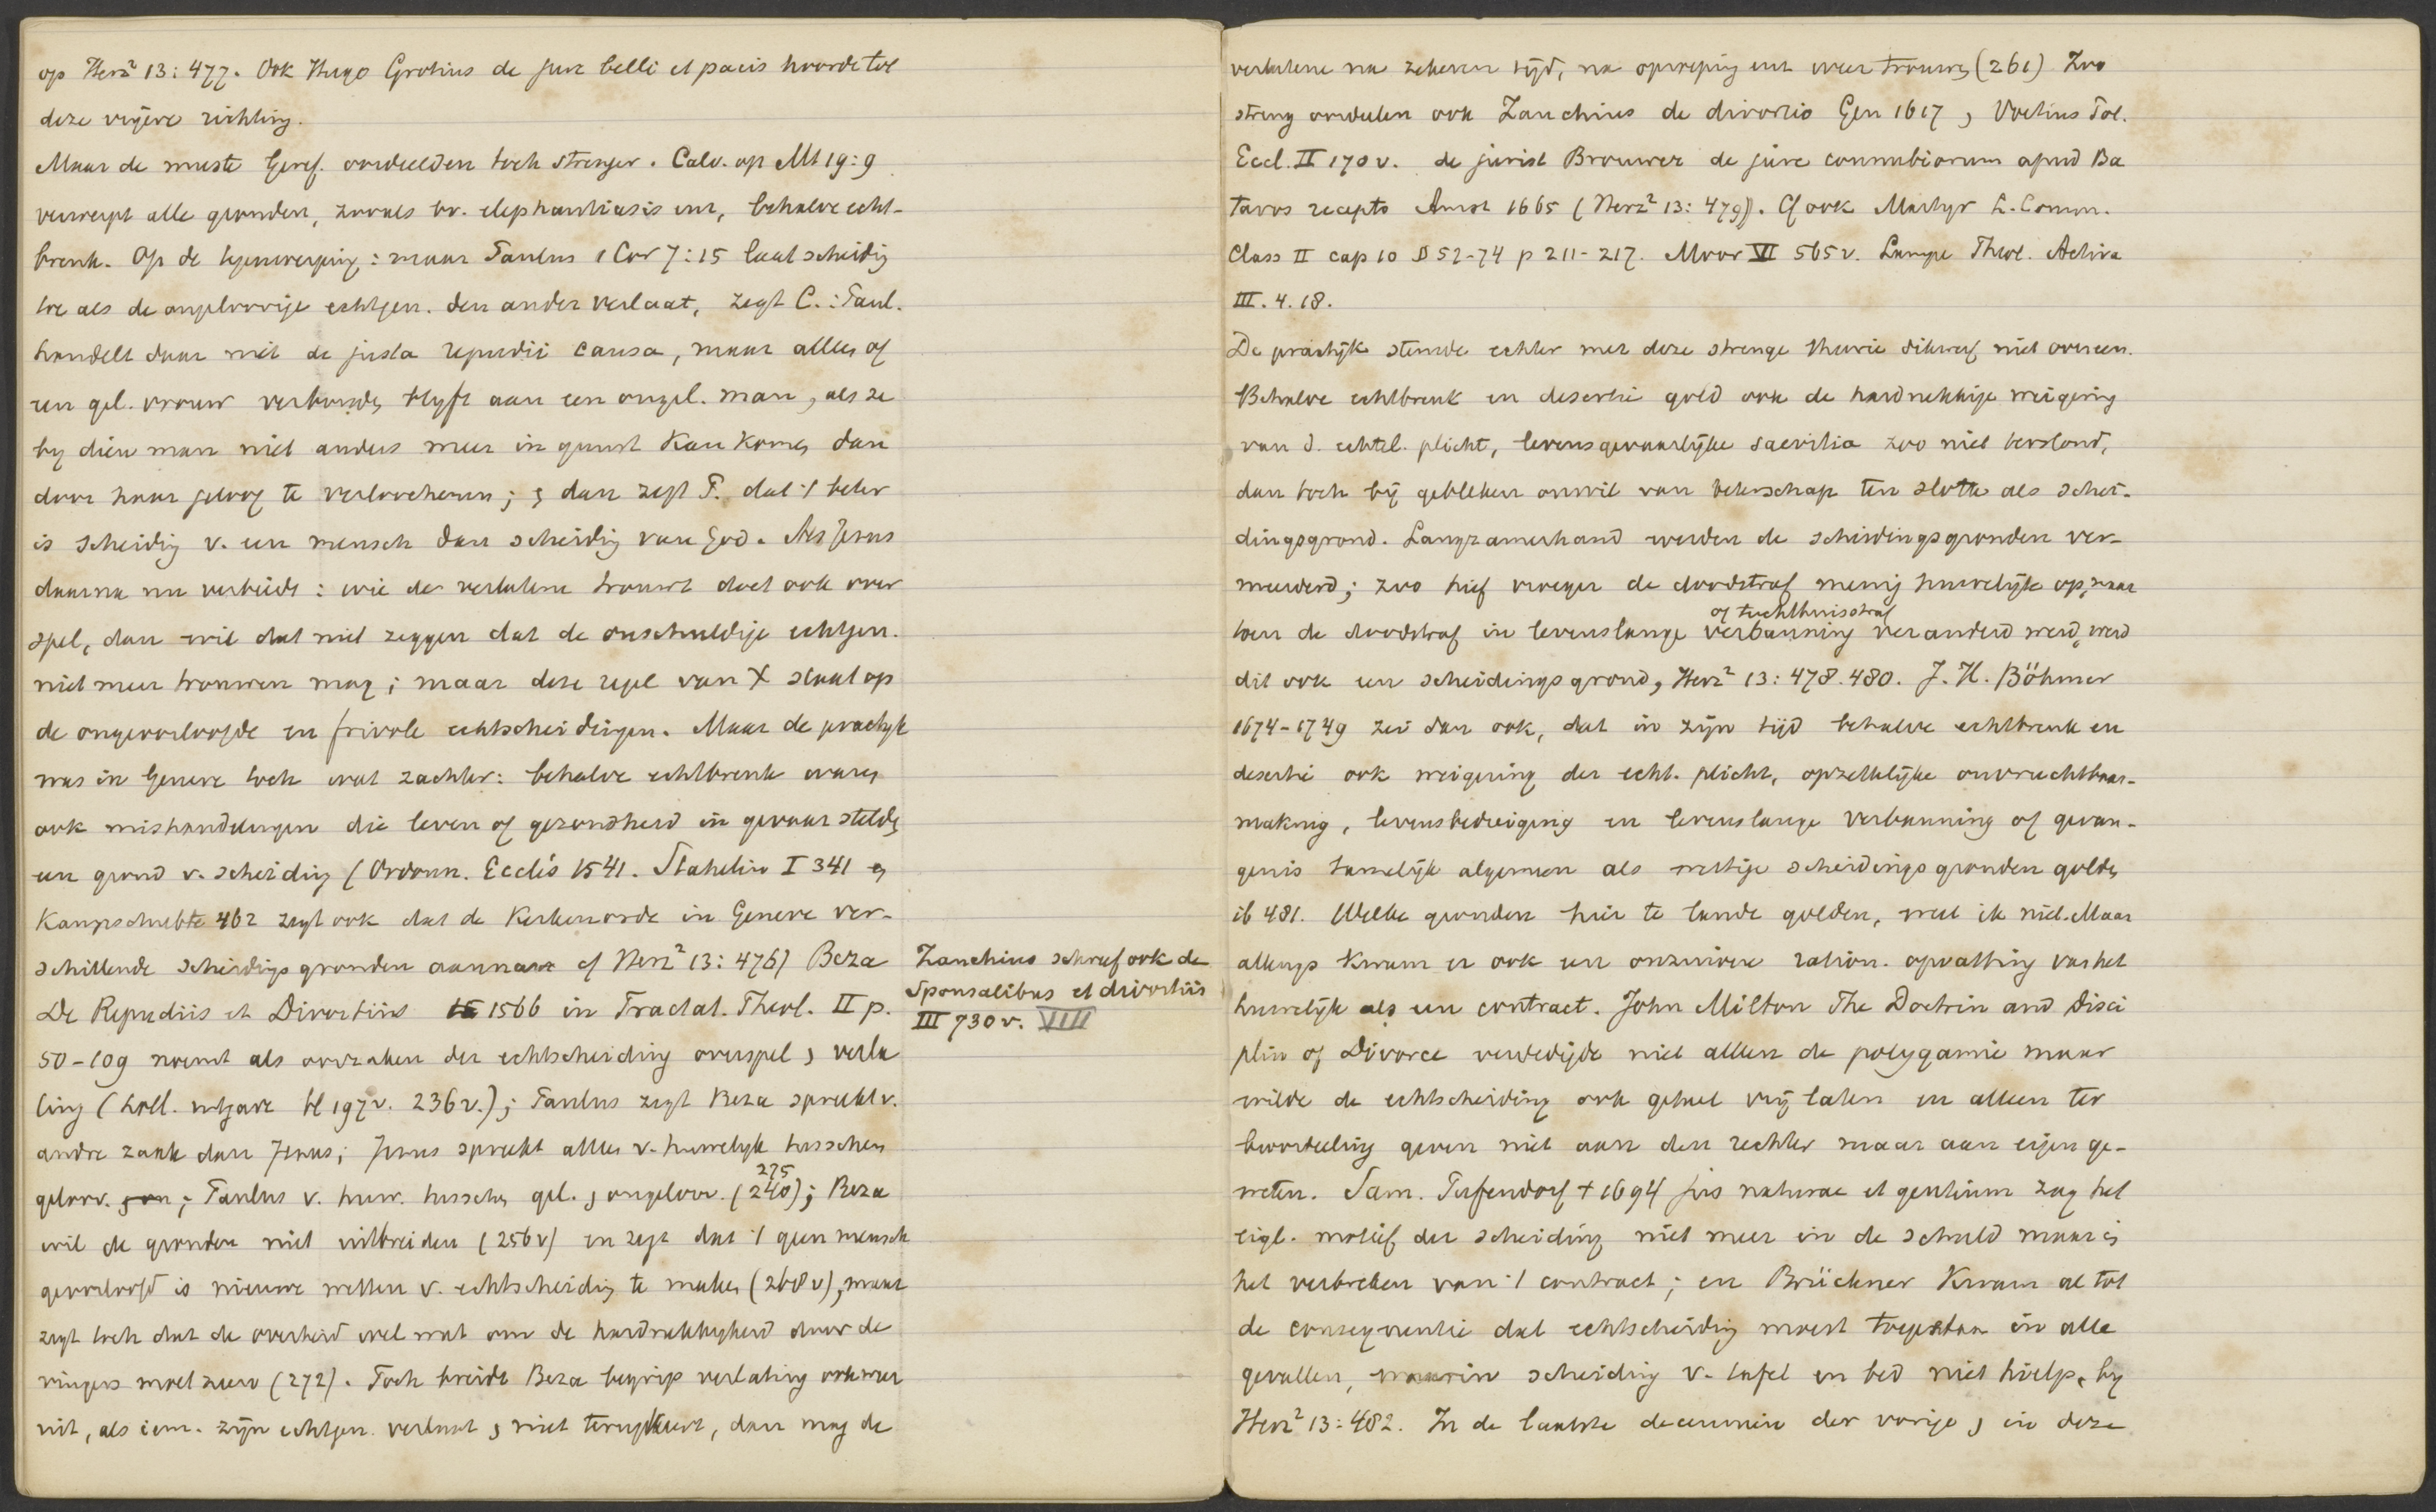 op Herz² 13: 477. Ook Hugo Grotius de jure belli et pacis hoorde tot
deze vrijere richting.
Maar de meeste Geref. oordeelden toch strenger. Calv. op Mt 19:9
verwerpt alle gronden, zooals bv. elephantiasis enz, behalve echt-
breuk. Op de tegenwerping: maar Paulus 1 Cor 7:15 laat scheidig
toe als de ongeloovige echtgen. den ander verlaat, zegt C.: Paul.
handelt daar niet de justa repudii causa, maar alleen of
een gel. vrouw verbonden blyft aan een ongel. man, als ze
by dien man niet anders meer in gunst kan komen dan
door haar geloof te verloochenen; en dan zegt P. dat 't beter
is scheidig v. een mensch dan scheidig van God. Als Jezus
daarna nu verbiedt: wie de verlatene trouwt doet ook over
spel, dan wil dat niet zeggen dat de onschuldige echtgen.
niet meer trouwen mag; maar deze regel van X slaat op
de ongeoorloofde en frivole echtscheidingen. Maar de practyk
was in Geneve toch wat zachter: behalve echtbreuk waren
ook mishandelingen die leven of gezondheid in gevaar stelden
een grond v. scheiding (Ordonn. Ecclés 1541. Stahelin I 341 en
Kampschulte 462 zegt ook dat de Kerkenorde in Geneve ver-
schillende scheidigsgronden aannam cf Herz² 13: 476) Beza
De Repudiis et Divortiis 1566 in Tractat. Theol. II p.
50-109 noemt als oorzaken der echtscheiding overspel en verla
ting (holl. uitgave bl 197v. 236v.); Paulus zegt Beza spreekt v.
andre zaak dan Jezus; Jezus spreekt alleen v. huwelyk tusschen
geloov. en; Paulus v. huw. tusschen gel. en ongeloov. (240); Beza
275
wil de gronden niet uitbreiden (256v) en zegt dat 't geen mensch
geoorloofd is nieuwe wetten v. echtscheidig te maken (268v), maar
zegt toch dat de overheid wel wat om de hardnekkigheid door de
vingers moet zien (272). Toch breidt Beza begrip verlating ook weer
uit, als iem. zijn echtgen. verlaat en niet terugkeert, dan mag de
Zanchius schreef ook de
Sponsalibus et divortiis
III 730v. VIII
verlatene na zekeren tijd, na oproeping enz weer trouwen (261) Zoo
streng oordeelen ook Zanchius de divortio Gen 1617, Voetius Pol.
Eccl. II 170v. de jurist Brouwer de jure connubiorum apud Ba
tavos recepto Amst 1665 (Herz² 13: 479). Cf ook Martyr L. Comm.
Class II cap 10 § 52-74 p 211-217. Moor VI 565v. Lampe Theol. Activa
III. 4. 18.
De practijk stemde echter met deze strenge theorie dikwerf niet overeen.
Behalve echtbreuk en desertie gold ook de hardnekkige weigering
van d. echtel. plicht, levensgevaarlijke saevitia zoo niet terstond,
dan toch bij gebleken onwil van beterschap ten slotte als schei-
dingsgrond. Langzamerhand werden de scheidingsgronden ver-
meerderd; zoo hief vroeger de doodstraf menig huwelijk op, maar
of tuchthuisstraf
toen de doodstraf in levenslange verbanning veranderd werd, werd
dit ook een scheidingsgrond, Herz² 13: 478.480. J. H. Böhmer
1674-1749 zei dan ook, dat in zijn tijd behalve echtbreuk en
desertie ook weigering der echt. plicht, opzettelijke onvruchtbaar-
making, levensbedreiging en levenslange verbanning of gevan-
genis tamelijk algemeen als wettige scheidingsgronden golden
ib 481. Welke gronden hier te lande golden, weet ik niet. Maar
allengs kwam er ook een onzuivere ration. opvatting van het
huwelijk als een contract. John Milton The Doctrin and Disci
plin of Divorce verdedigde niet alleen de polygamie maar
wilde de echtscheiding ook geheel vrij laten en alleen ter
beoordeeling geven niet aan den rechter maar aan eigen ge-
weten. Sam. Pufendorf † 1694 jus naturae et gentium zag het
eigl. motief der scheiding niet meer in de schuld maar in
het verbreken van 't contract; en Brückner kwam al tot
de consequentie dat echtscheidig moest toegestaan in alle
gevallen, waarin scheiding v. tafel en bed niet hielp, by
Herz² 13: 482. In de laatste decenniën der vorige en in deze